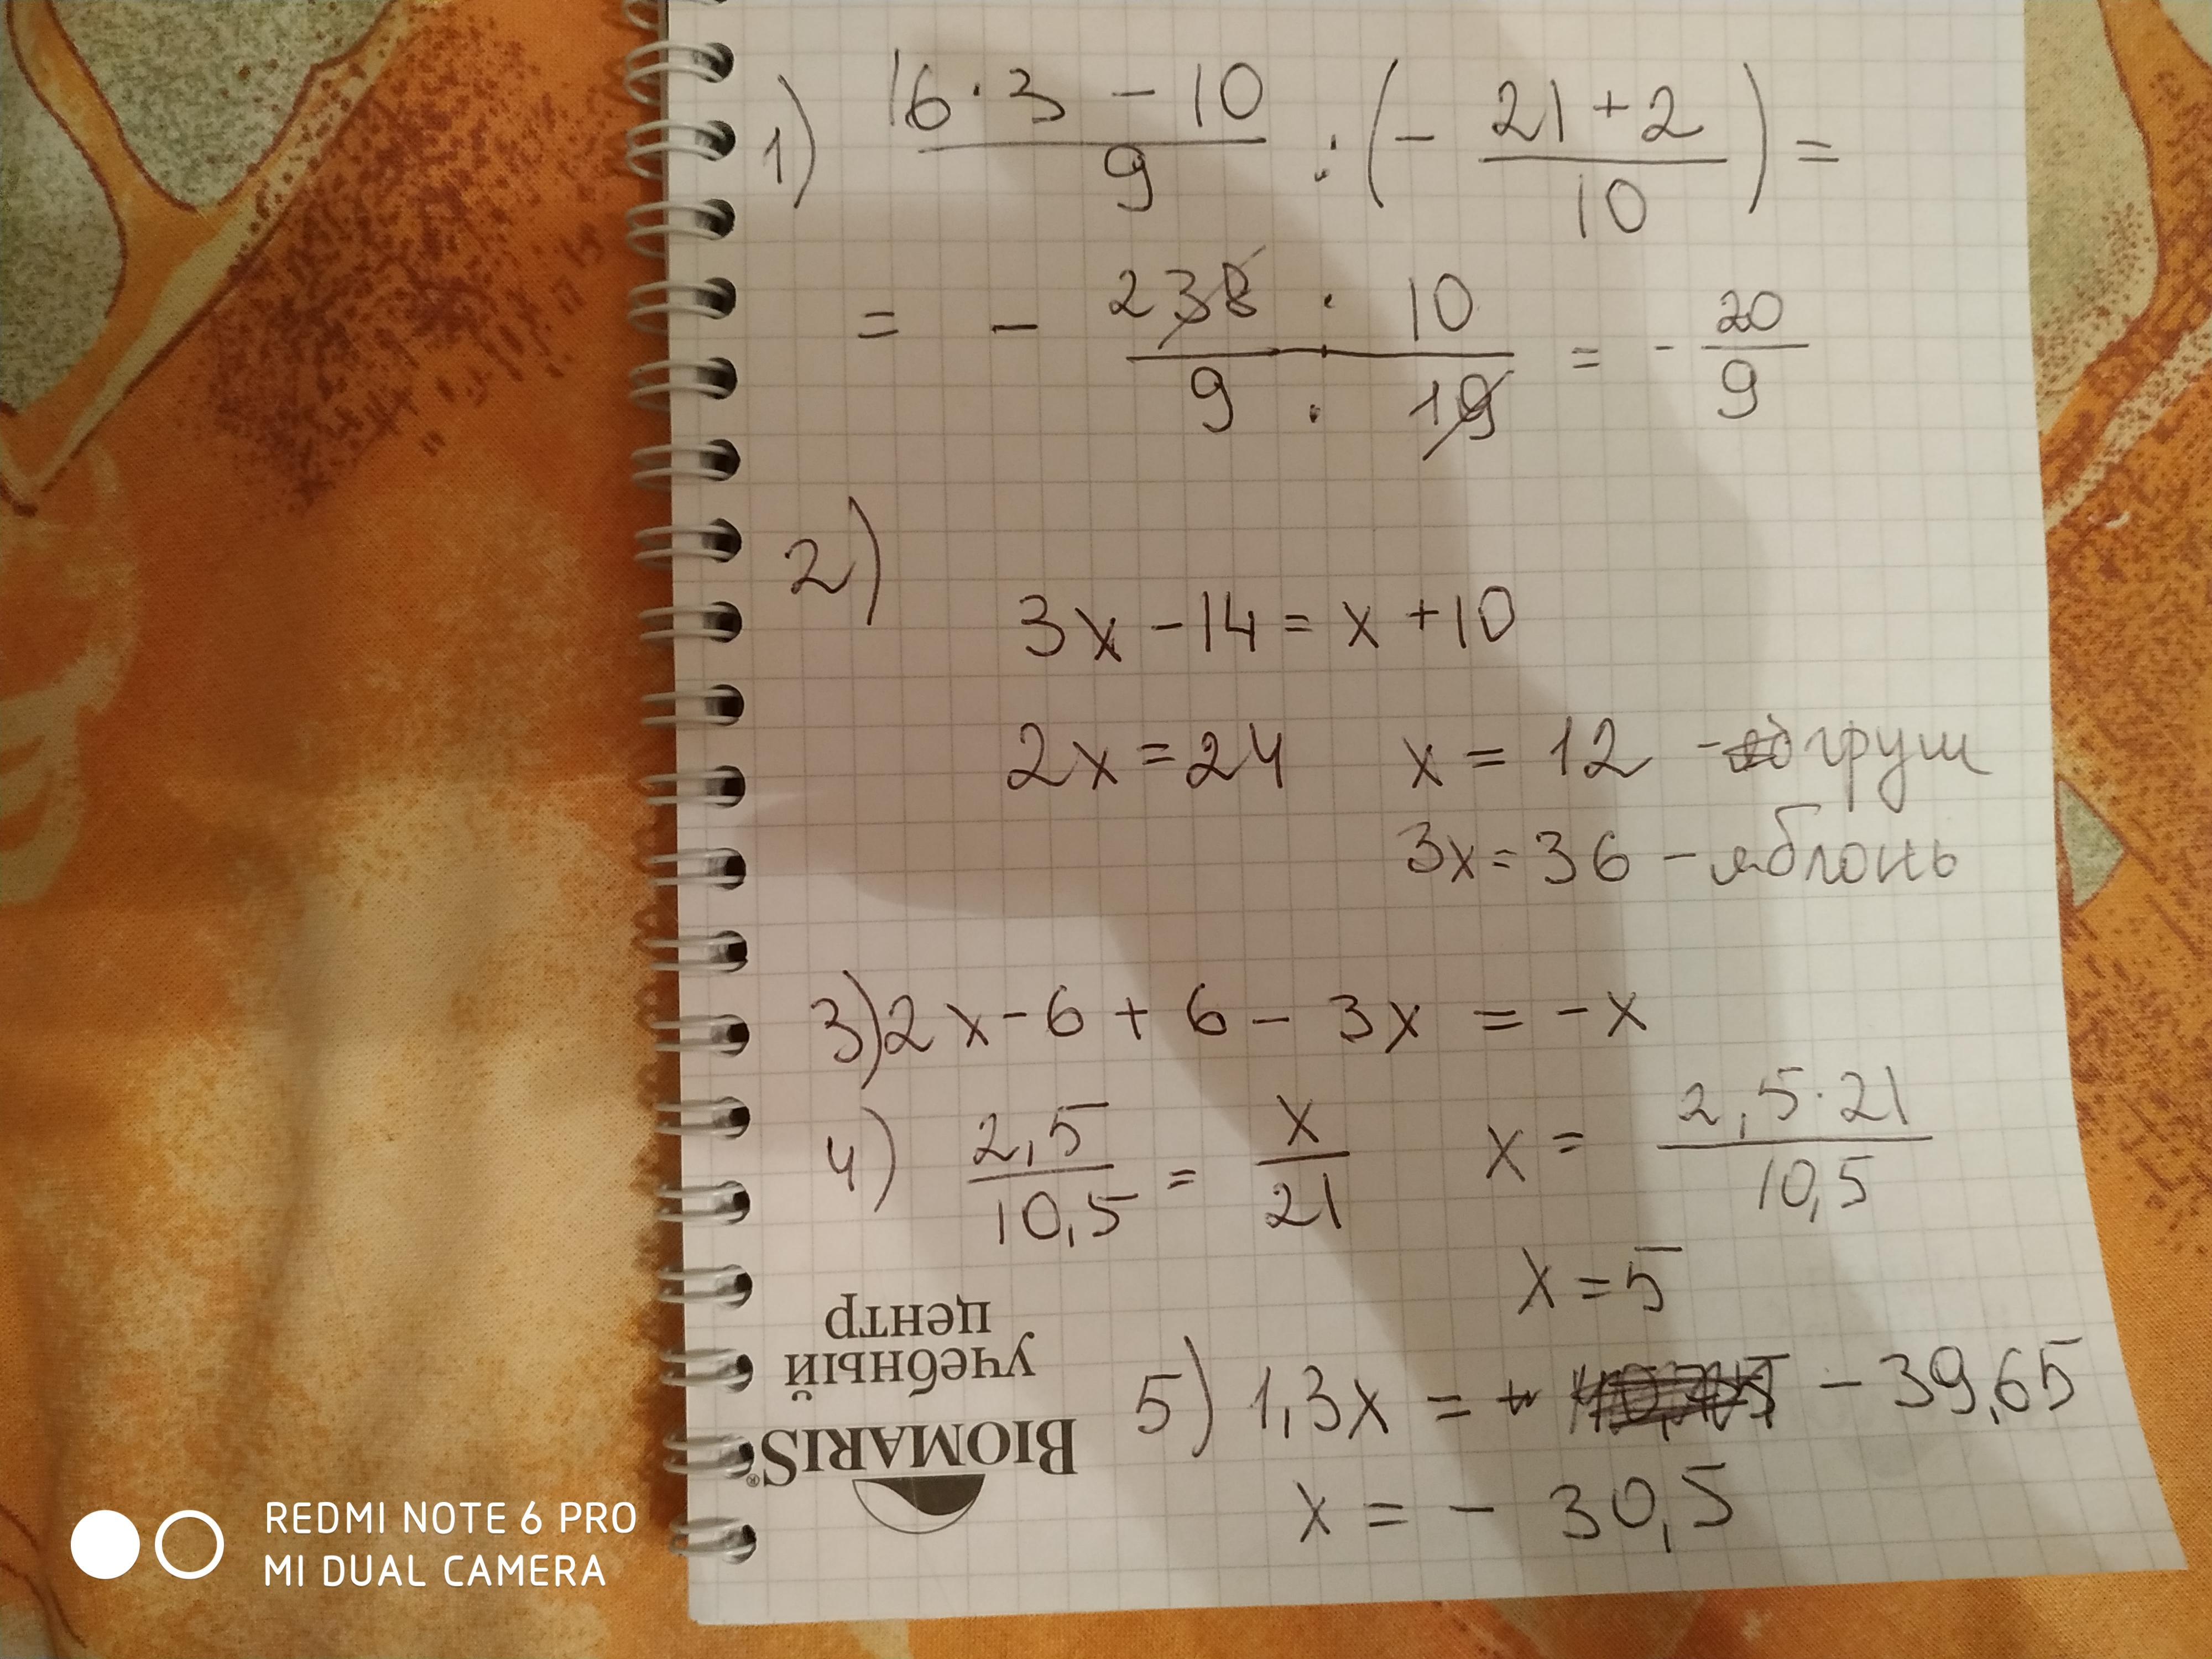 1) 16·3 - 10 / 9 : (- 21+2 / 10) =
= - 238 · 10 / 9 · 19 = - 20 / 9
2)
3x - 14 = x + 10
2x = 24 x = 12 - груш
3x = 36 - яблонь
3) 2x - 6 + 6 - 3x = -x
4) 2,5 / 10,5 = x / 21 x = 2,5·21 / 10,5
x = 5
5) 1,3x = - 39,65
x = - 30,5
BIOMARIS®
учебный
центр
REDMI NOTE 6 PRO
MI DUAL CAMERA